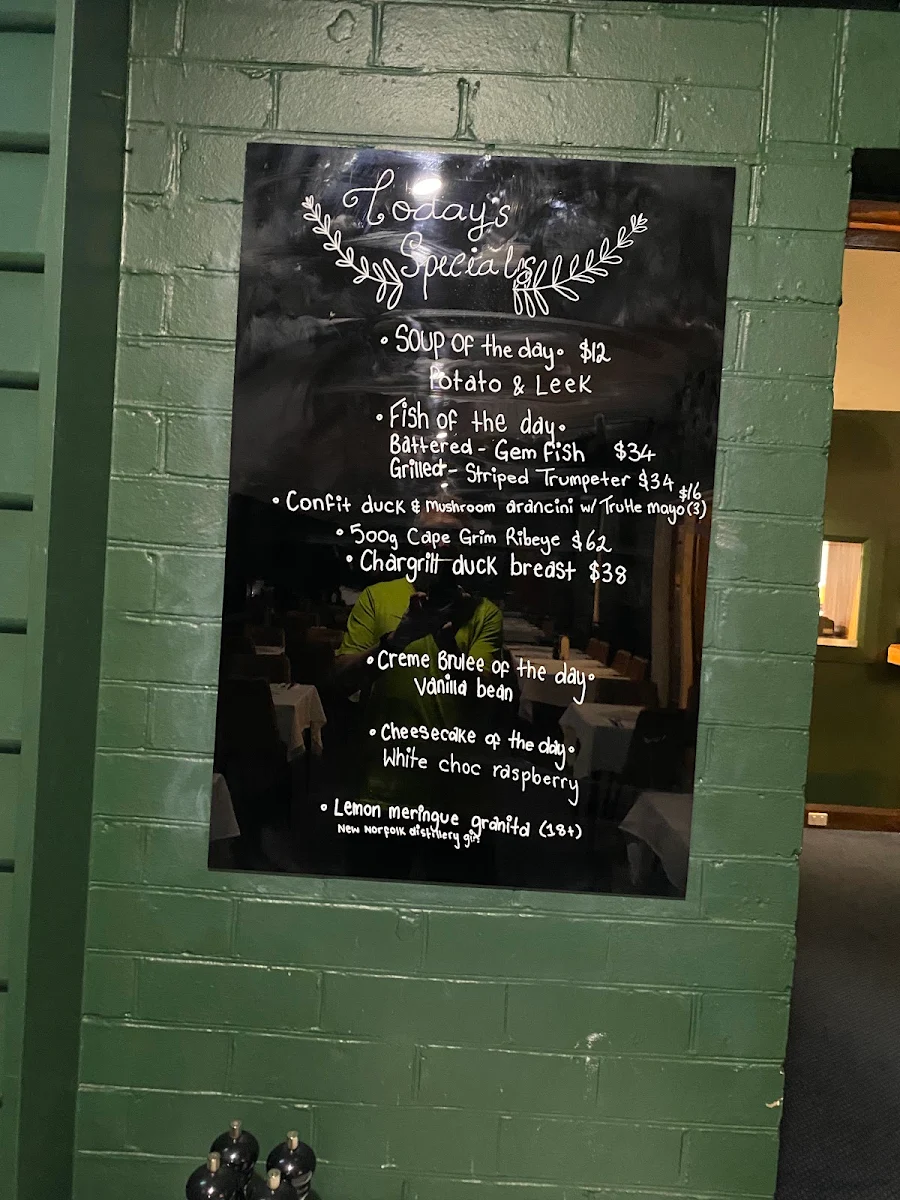 Today's
Specials
• Soup of the day • $12
Potato & Leek
• Fish of the day •
Battered - Gem Fish $34
Grilled - Striped Trumpeter $34
• Confit duck & Mushroom arancini w/ Truffle mayo (3) $16
• 500g Cape Grim Ribeye $62
• Chargrill duck breast $38
• Creme Brulee of the day •
Vanilla bean
• Cheesecake of the day •
White choc raspberry
• Lemon meringue granita (18+)
New Norfolk distillery gin